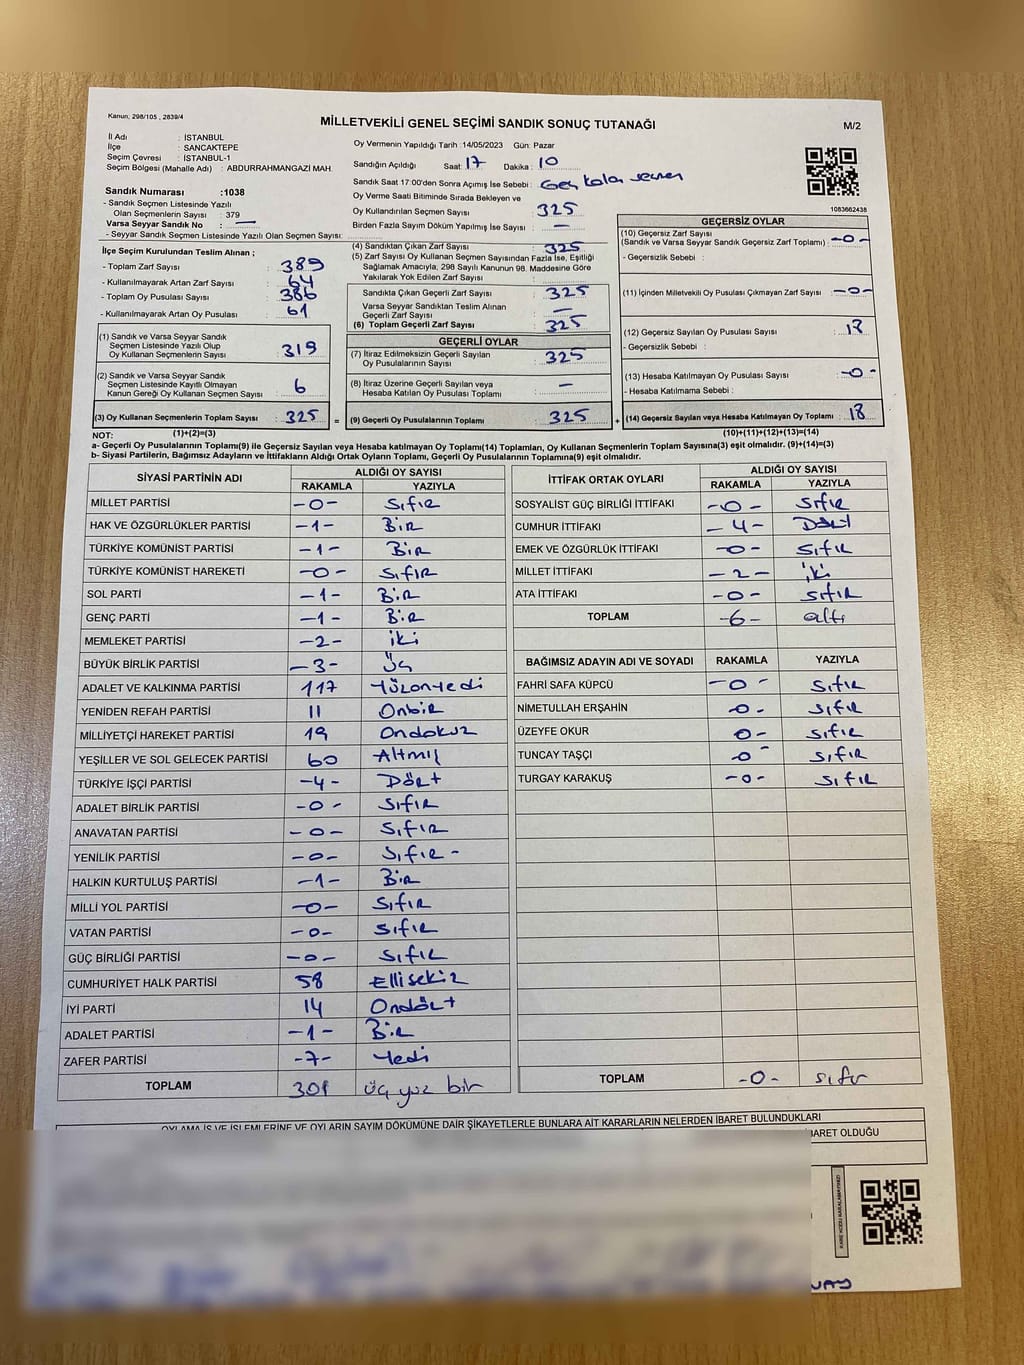 Kanun; 298/105 , 2839/4
MİLLETVEKİLİ GENEL SEÇİMİ SANDIK SONUÇ TUTANAĞI
M/2
İl Adı : İSTANBUL
İlçe : SANCAKTEPE
Seçim Çevresi : İSTANBUL-1
Seçim Bölgesi (Mahalle Adı) : ABDURRAHMANGAZİ MAH.
Sandık Numarası :1038
- Sandık Seçmen Listesinde Yazılı
Olan Seçmenlerin Sayısı : 379
Varsa Seyyar Sandık No : —
- Seyyar Sandık Seçmen Listesinde Yazılı Olan Seçmen Sayısı:
Oy Vermenin Yapıldığı Tarih :14/05/2023 Gün: Pazar
Sandığın Açıldığı Saat: 17 Dakika : 10
Sandık Saat 17:00'den Sonra Açımış İse Sebebi : Geç kalan seçmen
Oy Verme Saati Bitiminde Sırada Bekleyen ve
Oy Kullandırılan Seçmen Sayısı : 325
Birden Fazla Sayım Döküm Yapılmış İse Sayısı : —
1083662438
İlçe Seçim Kurulundan Teslim Alınan ;
- Toplam Zarf Sayısı : 389
- Kullanılmayarak Artan Zarf Sayısı : 64
- Toplam Oy Pusulası Sayısı : 386
- Kullanılmayarak Artan Oy Pusulası : 61
(1) Sandık ve Varsa Seyyar Sandık
Seçmen Listesinde Yazılı Olup
Oy Kullanan Seçmenlerin Sayısı : 319
(2) Sandık ve Varsa Seyyar Sandık
Seçmen Listesinde Kayıtlı Olmayan
Kanun Gereği Oy Kullanan Seçmen Sayısı : 6
(3) Oy Kullanan Seçmenlerin Toplam Sayısı : 325 =
(4) Sandıktan Çıkan Zarf Sayısı : 325
(5) Zarf Sayısı Oy Kullanan Seçmen Sayısından Fazla İse, Eşitliği
Sağlamak Amacıyla, 298 Sayılı Kanunun 98. Maddesine Göre
Yakılarak Yok Edilen Zarf Sayısı :
Sandıkta Çıkan Geçerli Zarf Sayısı : 325
Varsa Seyyar Sandıktan Teslim Alınan
Geçerli Zarf Sayısı : —
(6) Toplam Geçerli Zarf Sayısı : 325
GEÇERLİ OYLAR
(7) İtiraz Edilmeksizin Geçerli Sayılan
Oy Pusulalarının Sayısı : 325
(8) İtiraz Üzerine Geçerli Sayılan veya
Hesaba Katılan Oy Pusulası Toplamı : —
(9) Geçerli Oy Pusulalarının Toplamı : 325 +
GEÇERSİZ OYLAR
(10) Geçersiz Zarf Sayısı
(Sandık ve Varsa Seyyar Sandık Geçersiz Zarf Toplamı) : -0-
- Geçersizlik Sebebi :
(11) İçinden Milletvekili Oy Pusulası Çıkmayan Zarf Sayısı : -0-
(12) Geçersiz Sayılan Oy Pusulası Sayısı : 18
- Geçersizlik Sebebi :
(13) Hesaba Katılmayan Oy Pusulası Sayısı : -0-
- Hesaba Katılmama Sebebi :
(14) Geçersiz Sayılan veya Hesaba Katılmayan Oy Toplamı : 18
NOT: (1)+(2)=(3) (10)+(11)+(12)+(13)=(14)
a- Geçerli Oy Pusulalarının Toplamı(9) ile Geçersiz Sayılan veya Hesaba katılmayan Oy Toplamı(14) Toplamları, Oy Kullanan Seçmenlerin Toplam Sayısına(3) eşit olmalıdır. (9)+(14)=(3)
b- Siyasi Partilerin, Bağımsız Adayların ve İttifakların Aldığı Ortak Oyların Toplamı, Geçerli Oy Pusulalarının Toplamına(9) eşit olmalıdır.
SİYASİ PARTİNİN ADI ALDIĞI OY SAYISI
RAKAMLA YAZIYLA
MİLLET PARTİSİ -0- Sıfır
HAK VE ÖZGÜRLÜKLER PARTİSİ -1- Bir
TÜRKİYE KOMÜNİST PARTİSİ -1- Bir
TÜRKİYE KOMÜNİST HAREKETİ -0- Sıfır
SOL PARTİ -1- Bir
GENÇ PARTİ -1- Bir
MEMLEKET PARTİSİ -2- iki
BÜYÜK BİRLİK PARTİSİ -3- Üç
ADALET VE KALKINMA PARTİSİ 117 Yüzonyedi
YENİDEN REFAH PARTİSİ 11 Onbir
MİLLİYETÇİ HAREKET PARTİSİ 19 Ondokuz
YEŞİLLER VE SOL GELECEK PARTİSİ 60 Altmış
TÜRKİYE İŞÇİ PARTİSİ -4- Dört
ADALET BİRLİK PARTİSİ -0- Sıfır
ANAVATAN PARTİSİ -0- Sıfır
YENİLİK PARTİSİ -0- Sıfır -
HALKIN KURTULUŞ PARTİSİ -1- Bir
MİLLİ YOL PARTİSİ -0- Sıfır
VATAN PARTİSİ -0- Sıfır
GÜÇ BİRLİĞİ PARTİSİ -0- Sıfır
CUMHURİYET HALK PARTİSİ 58 Ellisekiz
İYİ PARTİ 14 Ondört
ADALET PARTİSİ -1- Bir
ZAFER PARTİSİ -7- Yedi
TOPLAM 301 üç yüz bir
İTTİFAK ORTAK OYLARI ALDIĞI OY SAYISI
RAKAMLA YAZIYLA
SOSYALİST GÜÇ BİRLİĞİ İTTİFAKI -0- Sıfır
CUMHUR İTTİFAKI -4- Dört
EMEK VE ÖZGÜRLÜK İTTİFAKI -0- Sıfır
MİLLET İTTİFAKI -2- iki
ATA İTTİFAKI -0- Sıfır
TOPLAM -6- altı
BAĞIMSIZ ADAYIN ADI VE SOYADI RAKAMLA YAZIYLA
FAHRİ SAFA KÜPCÜ -0- Sıfır
NİMETULLAH ERŞAHİN -0- Sıfır
ÜZEYFE OKUR 0- Sıfır
TUNCAY TAŞÇI -0- Sıfır
TURGAY KARAKUŞ -0- Sıfır
TOPLAM -0- sıfır
OYLAMA İŞ VE İŞLEMLERİNE VE OYLARIN SAYIM DÖKÜMÜNE DAİR ŞİKAYETLERLE BUNLARA AİT KARARLARIN NELERDEN İBARET BULUNDUKLARI
BARET OLDUĞU
KARE KODU KARALAMAYINIZ!